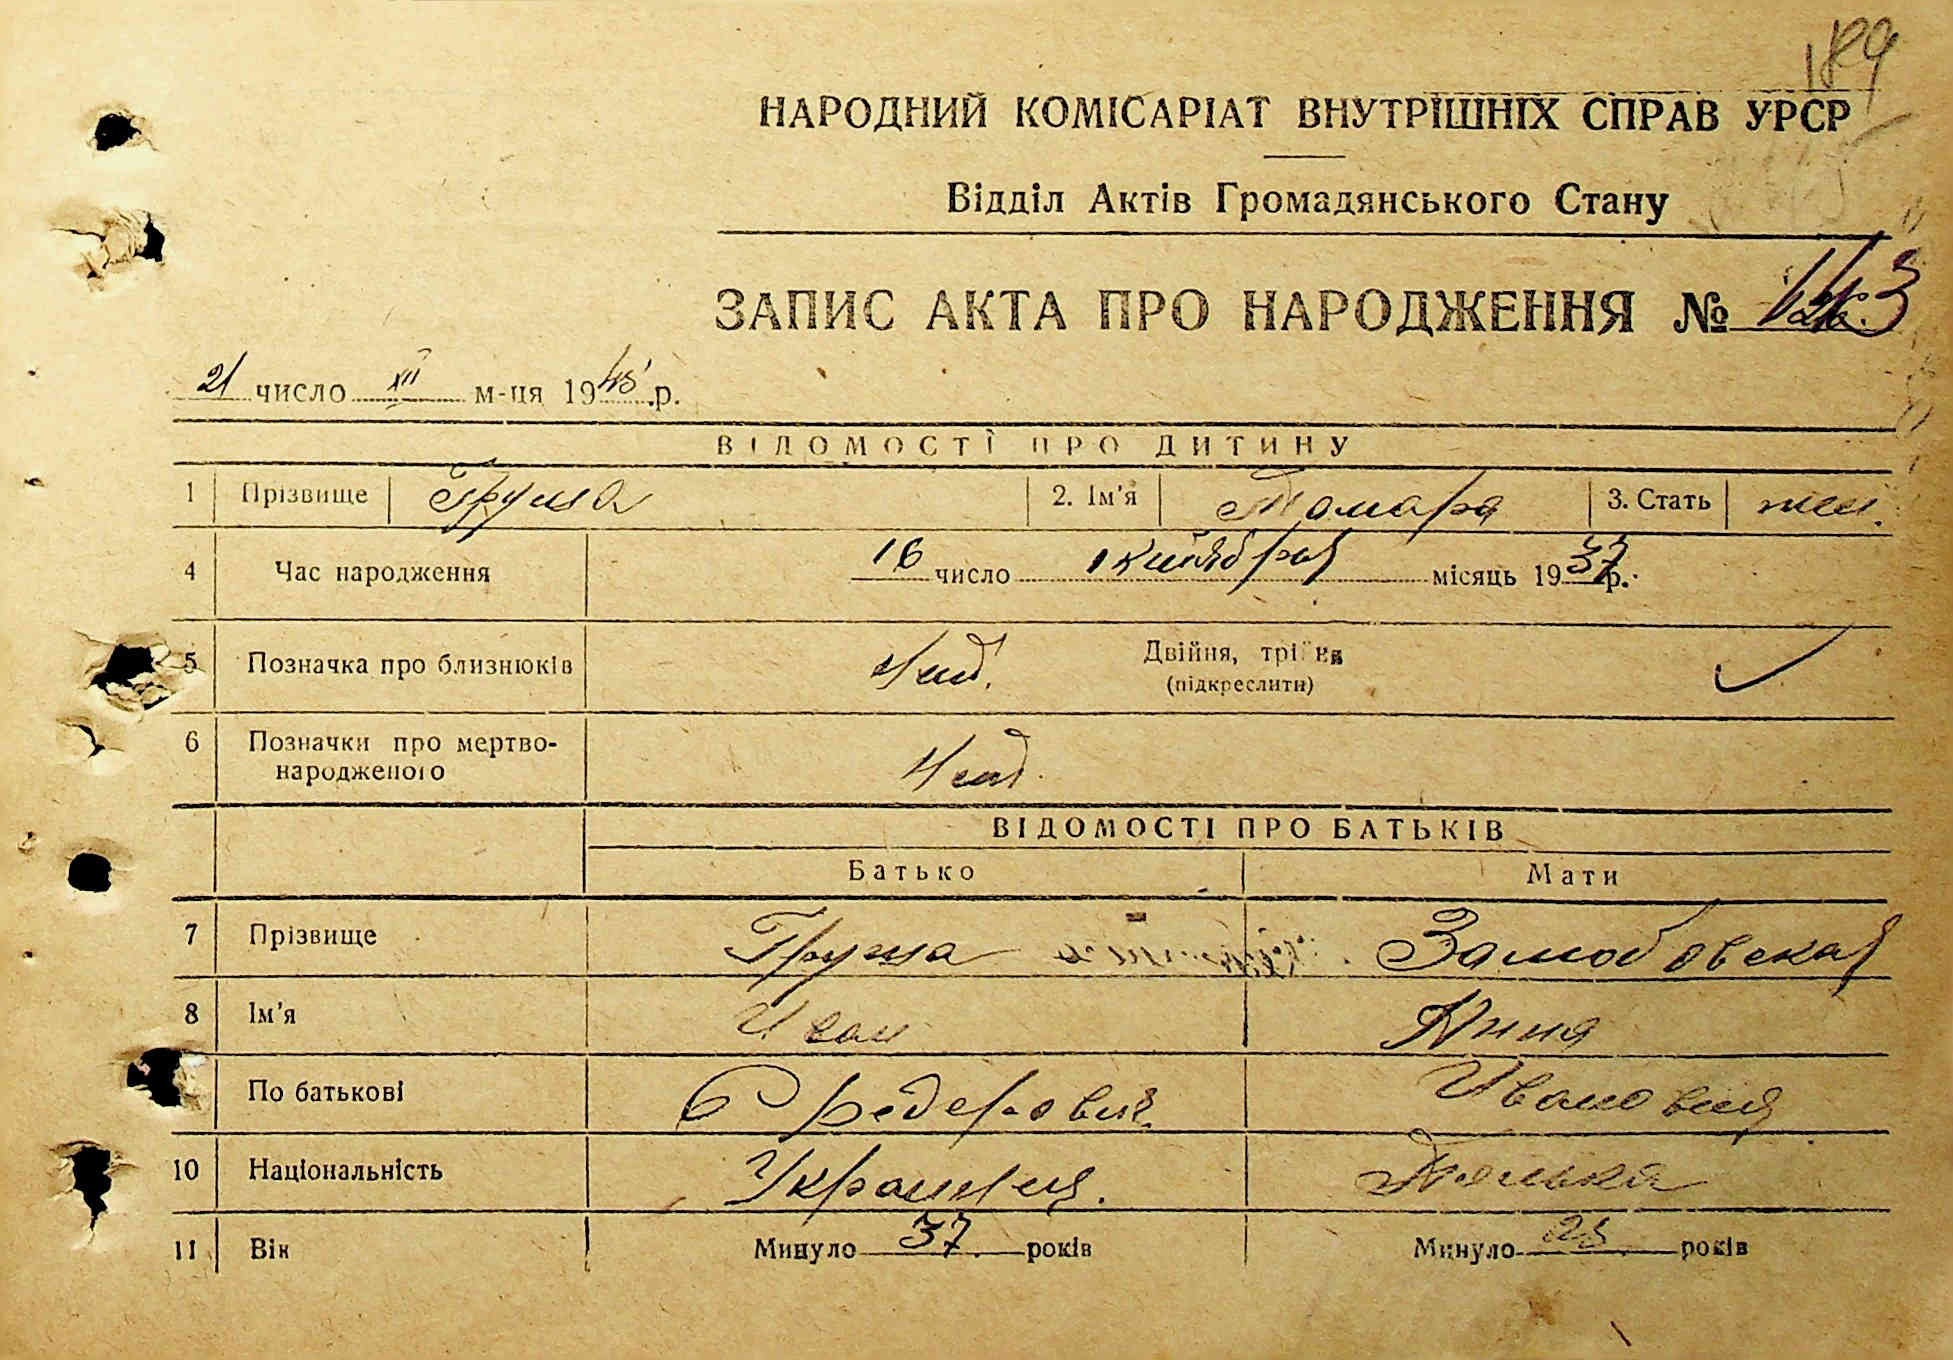 189
НАРОДНИЙ КОМІСАРІАТ ВНУТРІШНІХ СПРАВ УРСР
Відділ Актів Громадянського Стану
ЗАПИС АКТА ПРО НАРОДЖЕННЯ № 143
21 число XII м-ця 1945 р.
ВІДОМОСТІ ПРО ДИТИНУ
1 Прізвище Груша 2. Ім'я Тамара 3. Стать жен.
4 Час народження 16 число октября місяць 1937 р.
5 Позначка про близнюків Двійня, трійня
(підкреслити)
6 Позначки про мертво-
народженого
ВІДОМОСТІ ПРО БАТЬКІВ
Батько Мати
7 Прізвище Груша
8 Ім'я Иван Анна
По батькові Федорович Ивановна
10 Національність Украинец. Полька
11 Вік Минуло 37 років Минуло 25 років